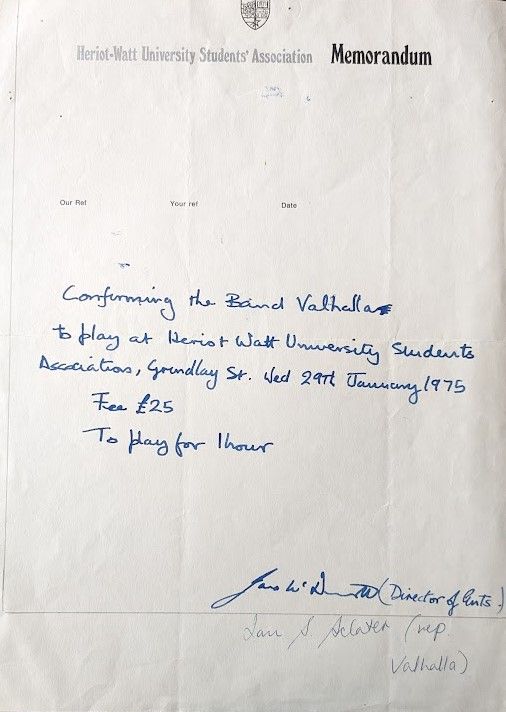 Heriot-Watt University Students' Association Memorandum
Our Ref Your ref Date
Confirming the Band Valhalla
to play at Heriot Watt University Students
Association, Grindlay St. Wed 29th January 1975
Fee £25
To play for 1 hour
(Director of Ents.)
Ian S. Sclater (rep.
Valhalla)